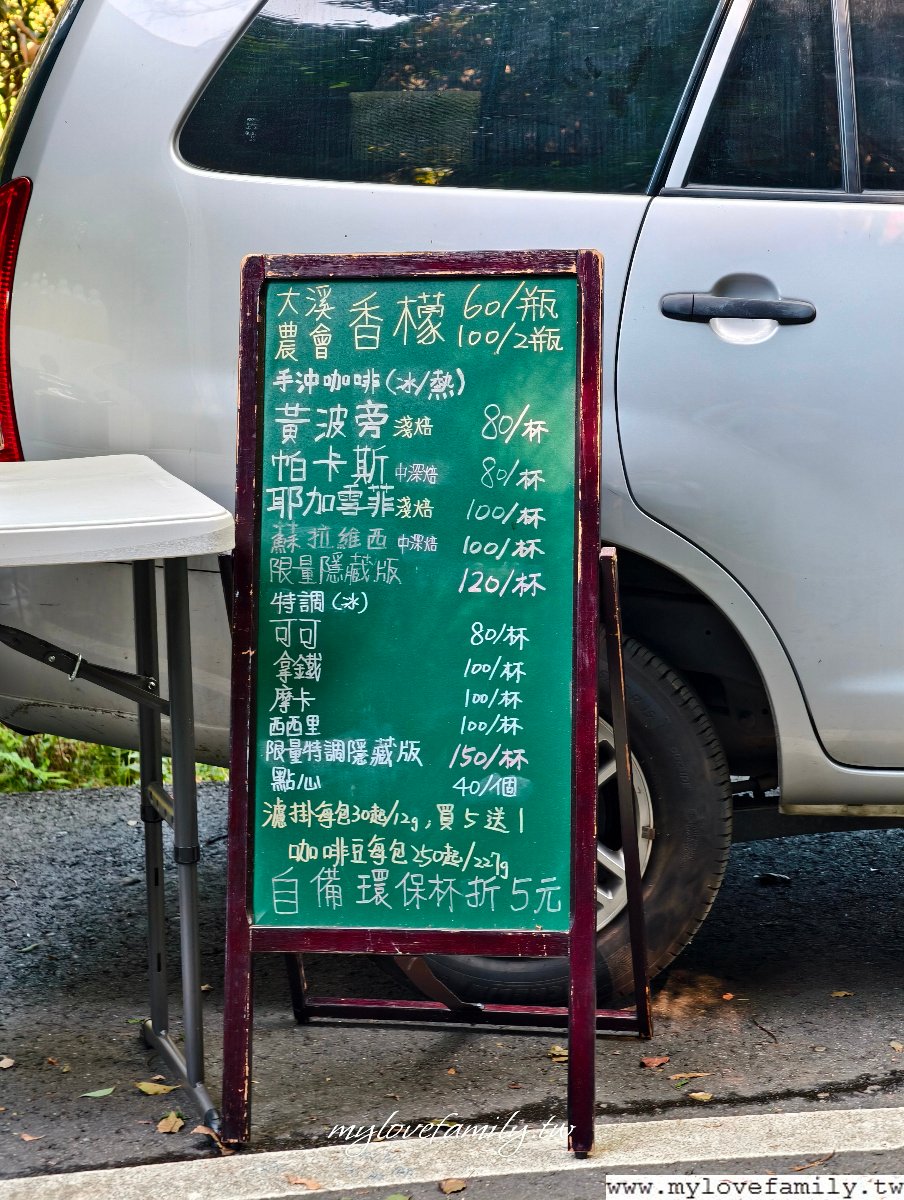 大溪農會 香檬 60/瓶
100/2瓶
手沖咖啡(冰/熱)
黃波旁 淺焙 80/杯
帕卡斯 中深焙 80/杯
耶加雪菲 淺焙 100/杯
蘇拉維西 中深焙 100/杯
限量隱藏版 120/杯
特調(冰)
可可 80/杯
拿鐵 100/杯
摩卡 100/杯
西西里 100/杯
限量特調隱藏版 150/杯
點心 40/個
濾掛每包30起/12g,買5送1
咖啡豆每包250起/227g
自備環保杯折5元
mylovefamily.tw
www.mylovefamily.tw